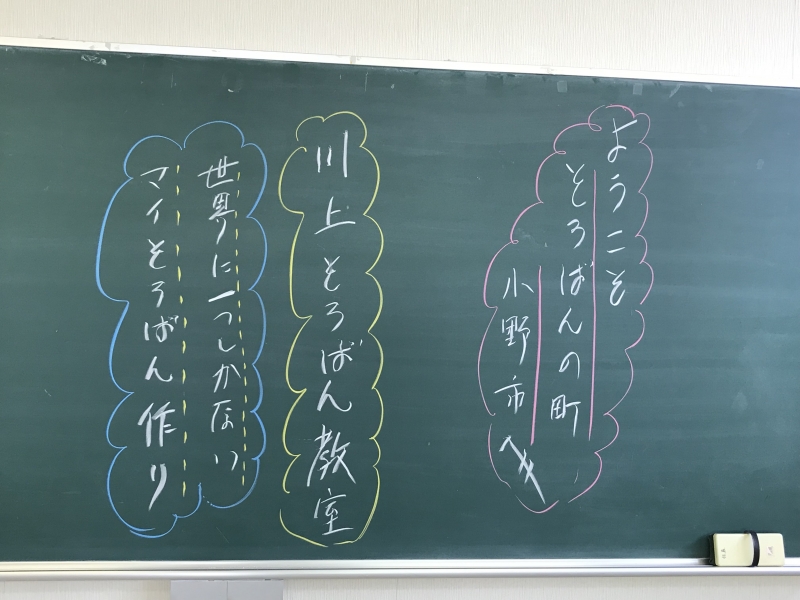 ようこそ
そろばんの町
小野市へ
川上そろばん教室
世界に一つしかない
マイそろばん作り